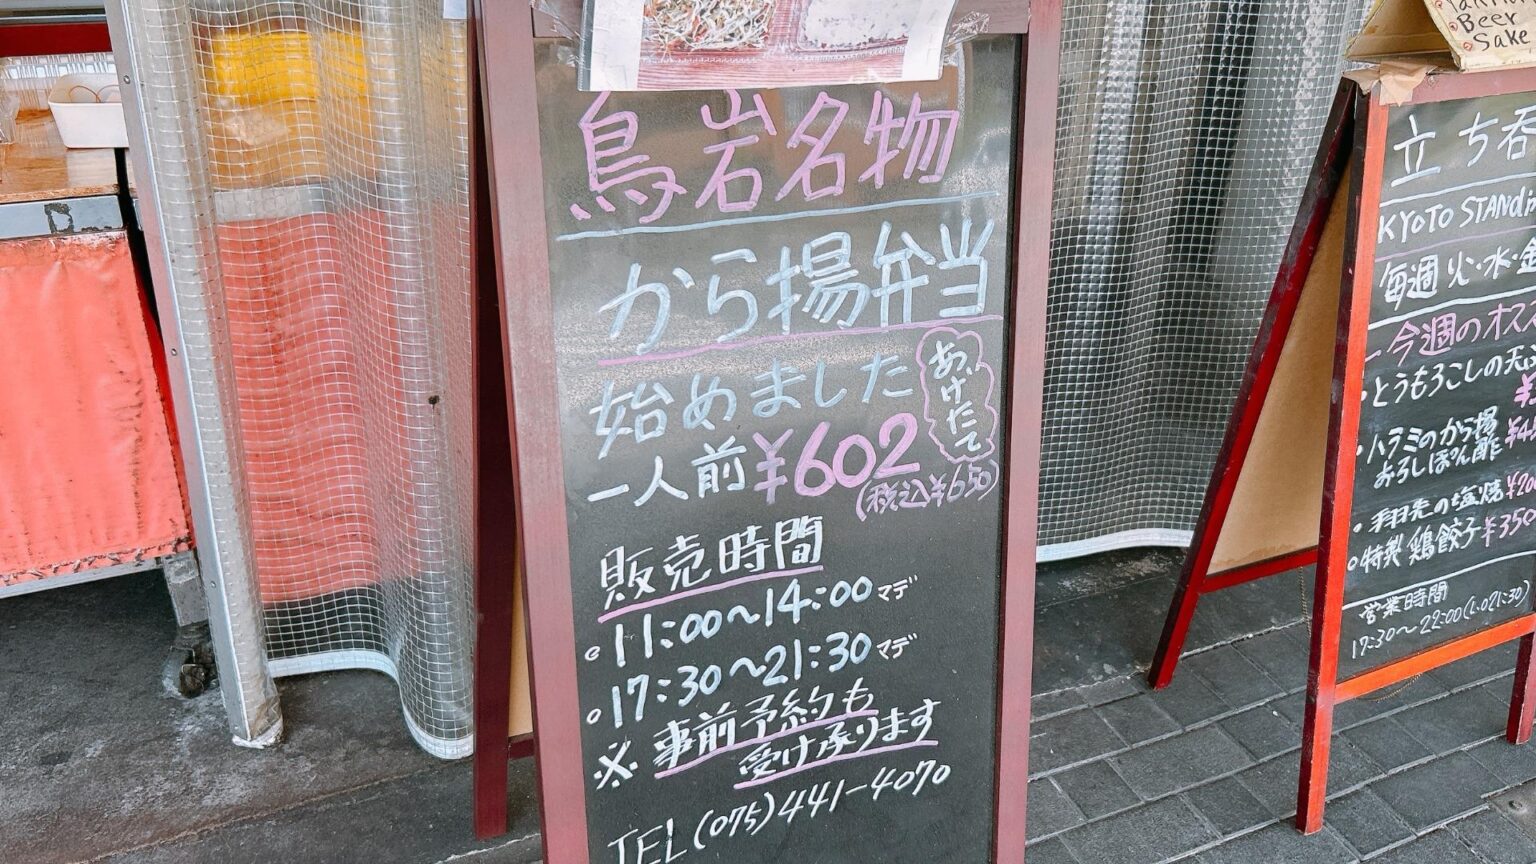 鳥岩名物
から揚弁当
始めました
あげたて
一人前 ¥602
(税込¥650)
販売時間
○11:00〜14:00マデ
○17:30〜21:30マデ
※事前予約も
受け承ります
TEL(075)441-4070
Beer
Sake
立ち呑
KYOTO STANDIN
毎週 火・水・金
今週のオス
・とうもろこしの天ぷ
・ハラミのから揚
おろしぽん酢
・手羽先の塩焼
○特製 鶏餃子 ¥350
営業時間
17:30〜22:00(L.O21:30)